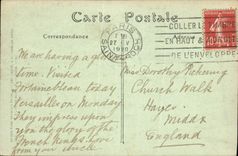 Carte Postale
Correspondance
PARIS
COLLER L
EN HAUT &
DE L'ENVELOPPE
We are having a gla
Time. Visited
Fontainebleau today
Versailles on Monday
They impress upon
you the glory of the
French Kings. Love
from your Uncle
Miss Dorothy Pickering
Church Walk
Hayes
Middx
England